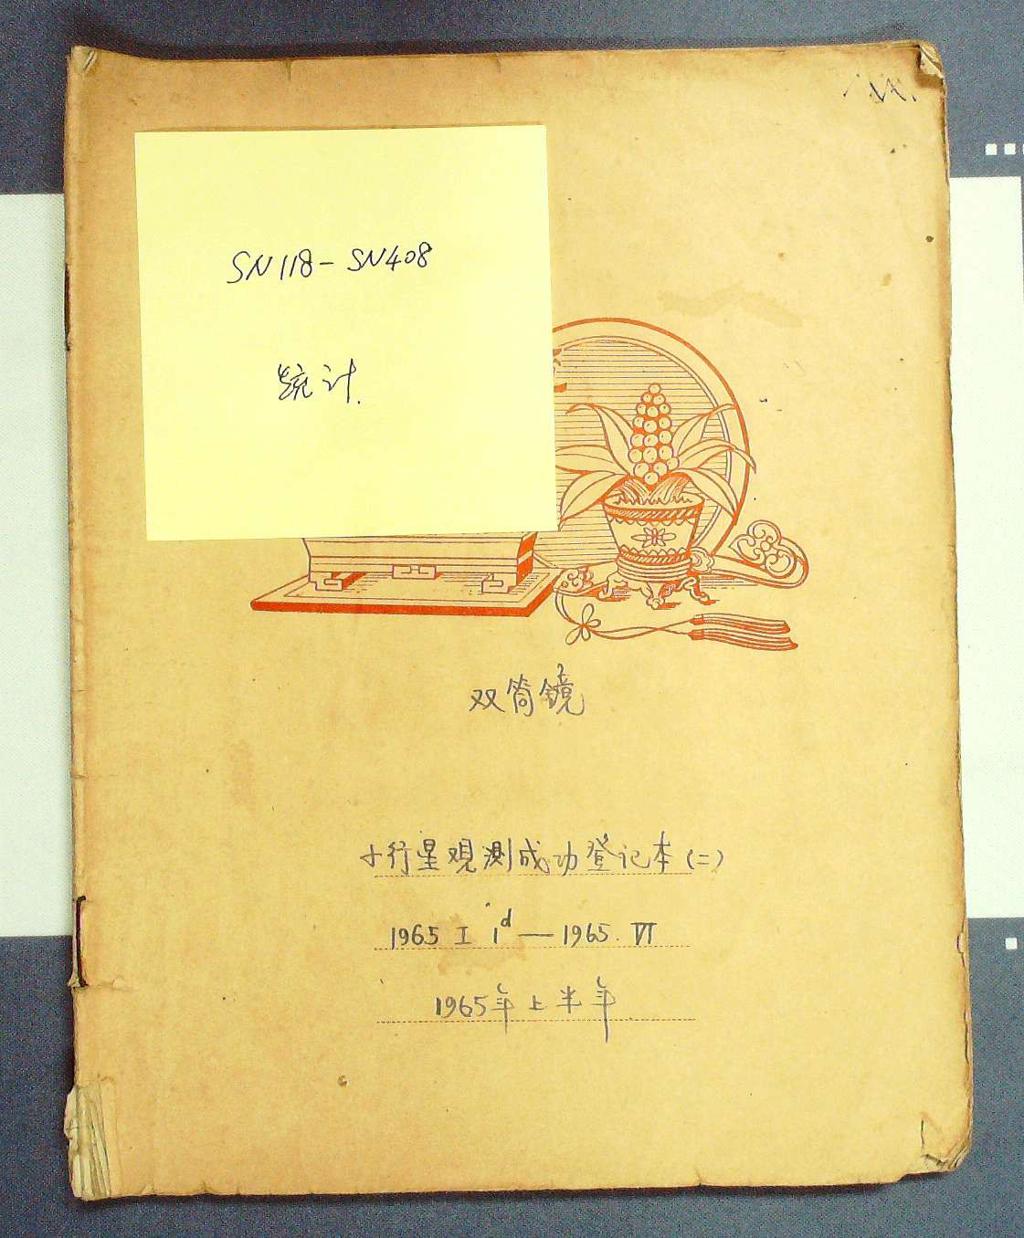 SN118-SN408
统计.
双筒镜
小行星观测成功登记本(二)
1965 I 1d — 1965. VI
1965年上半年